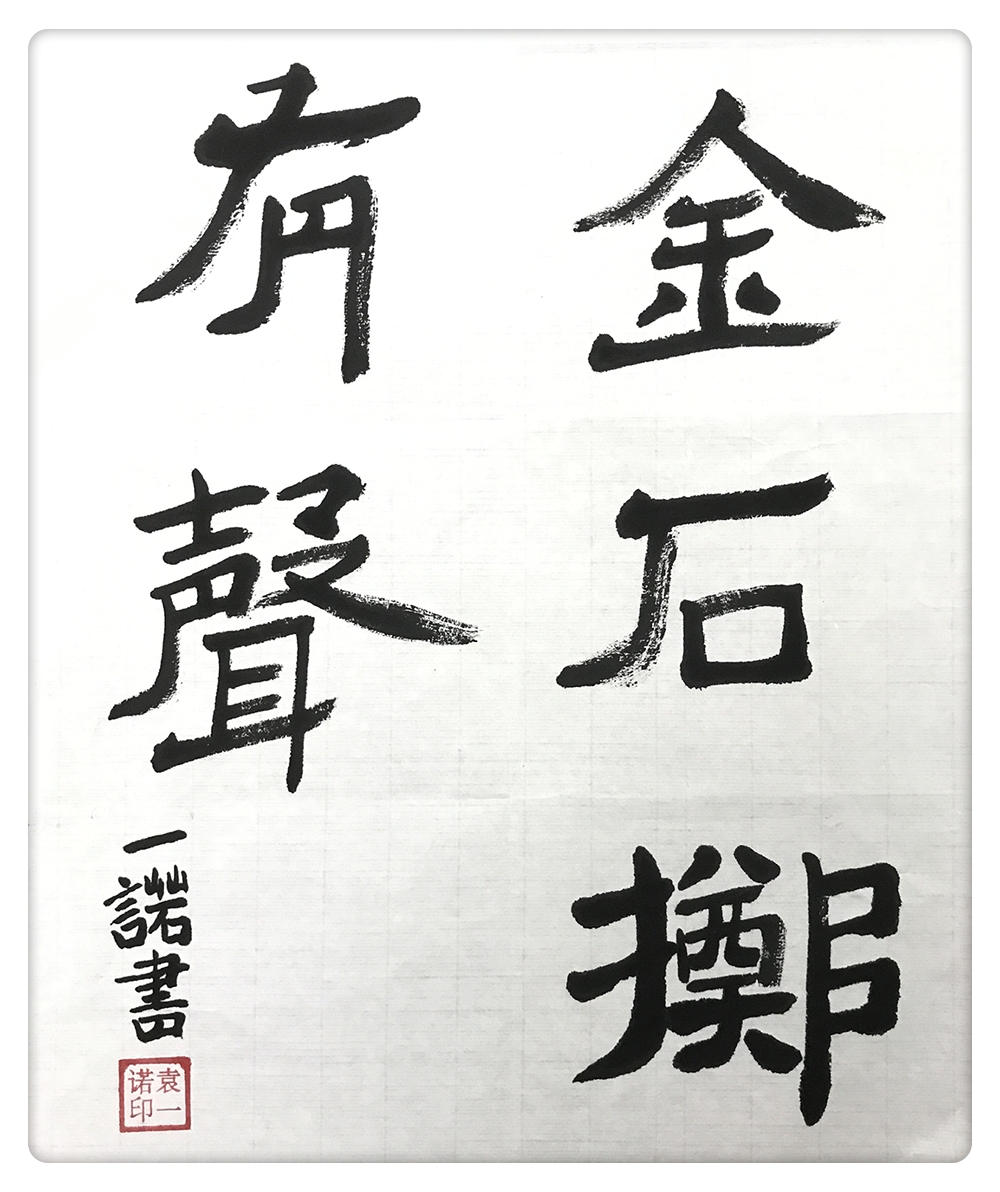 金石擲
有聲
一諾書
袁一诺印